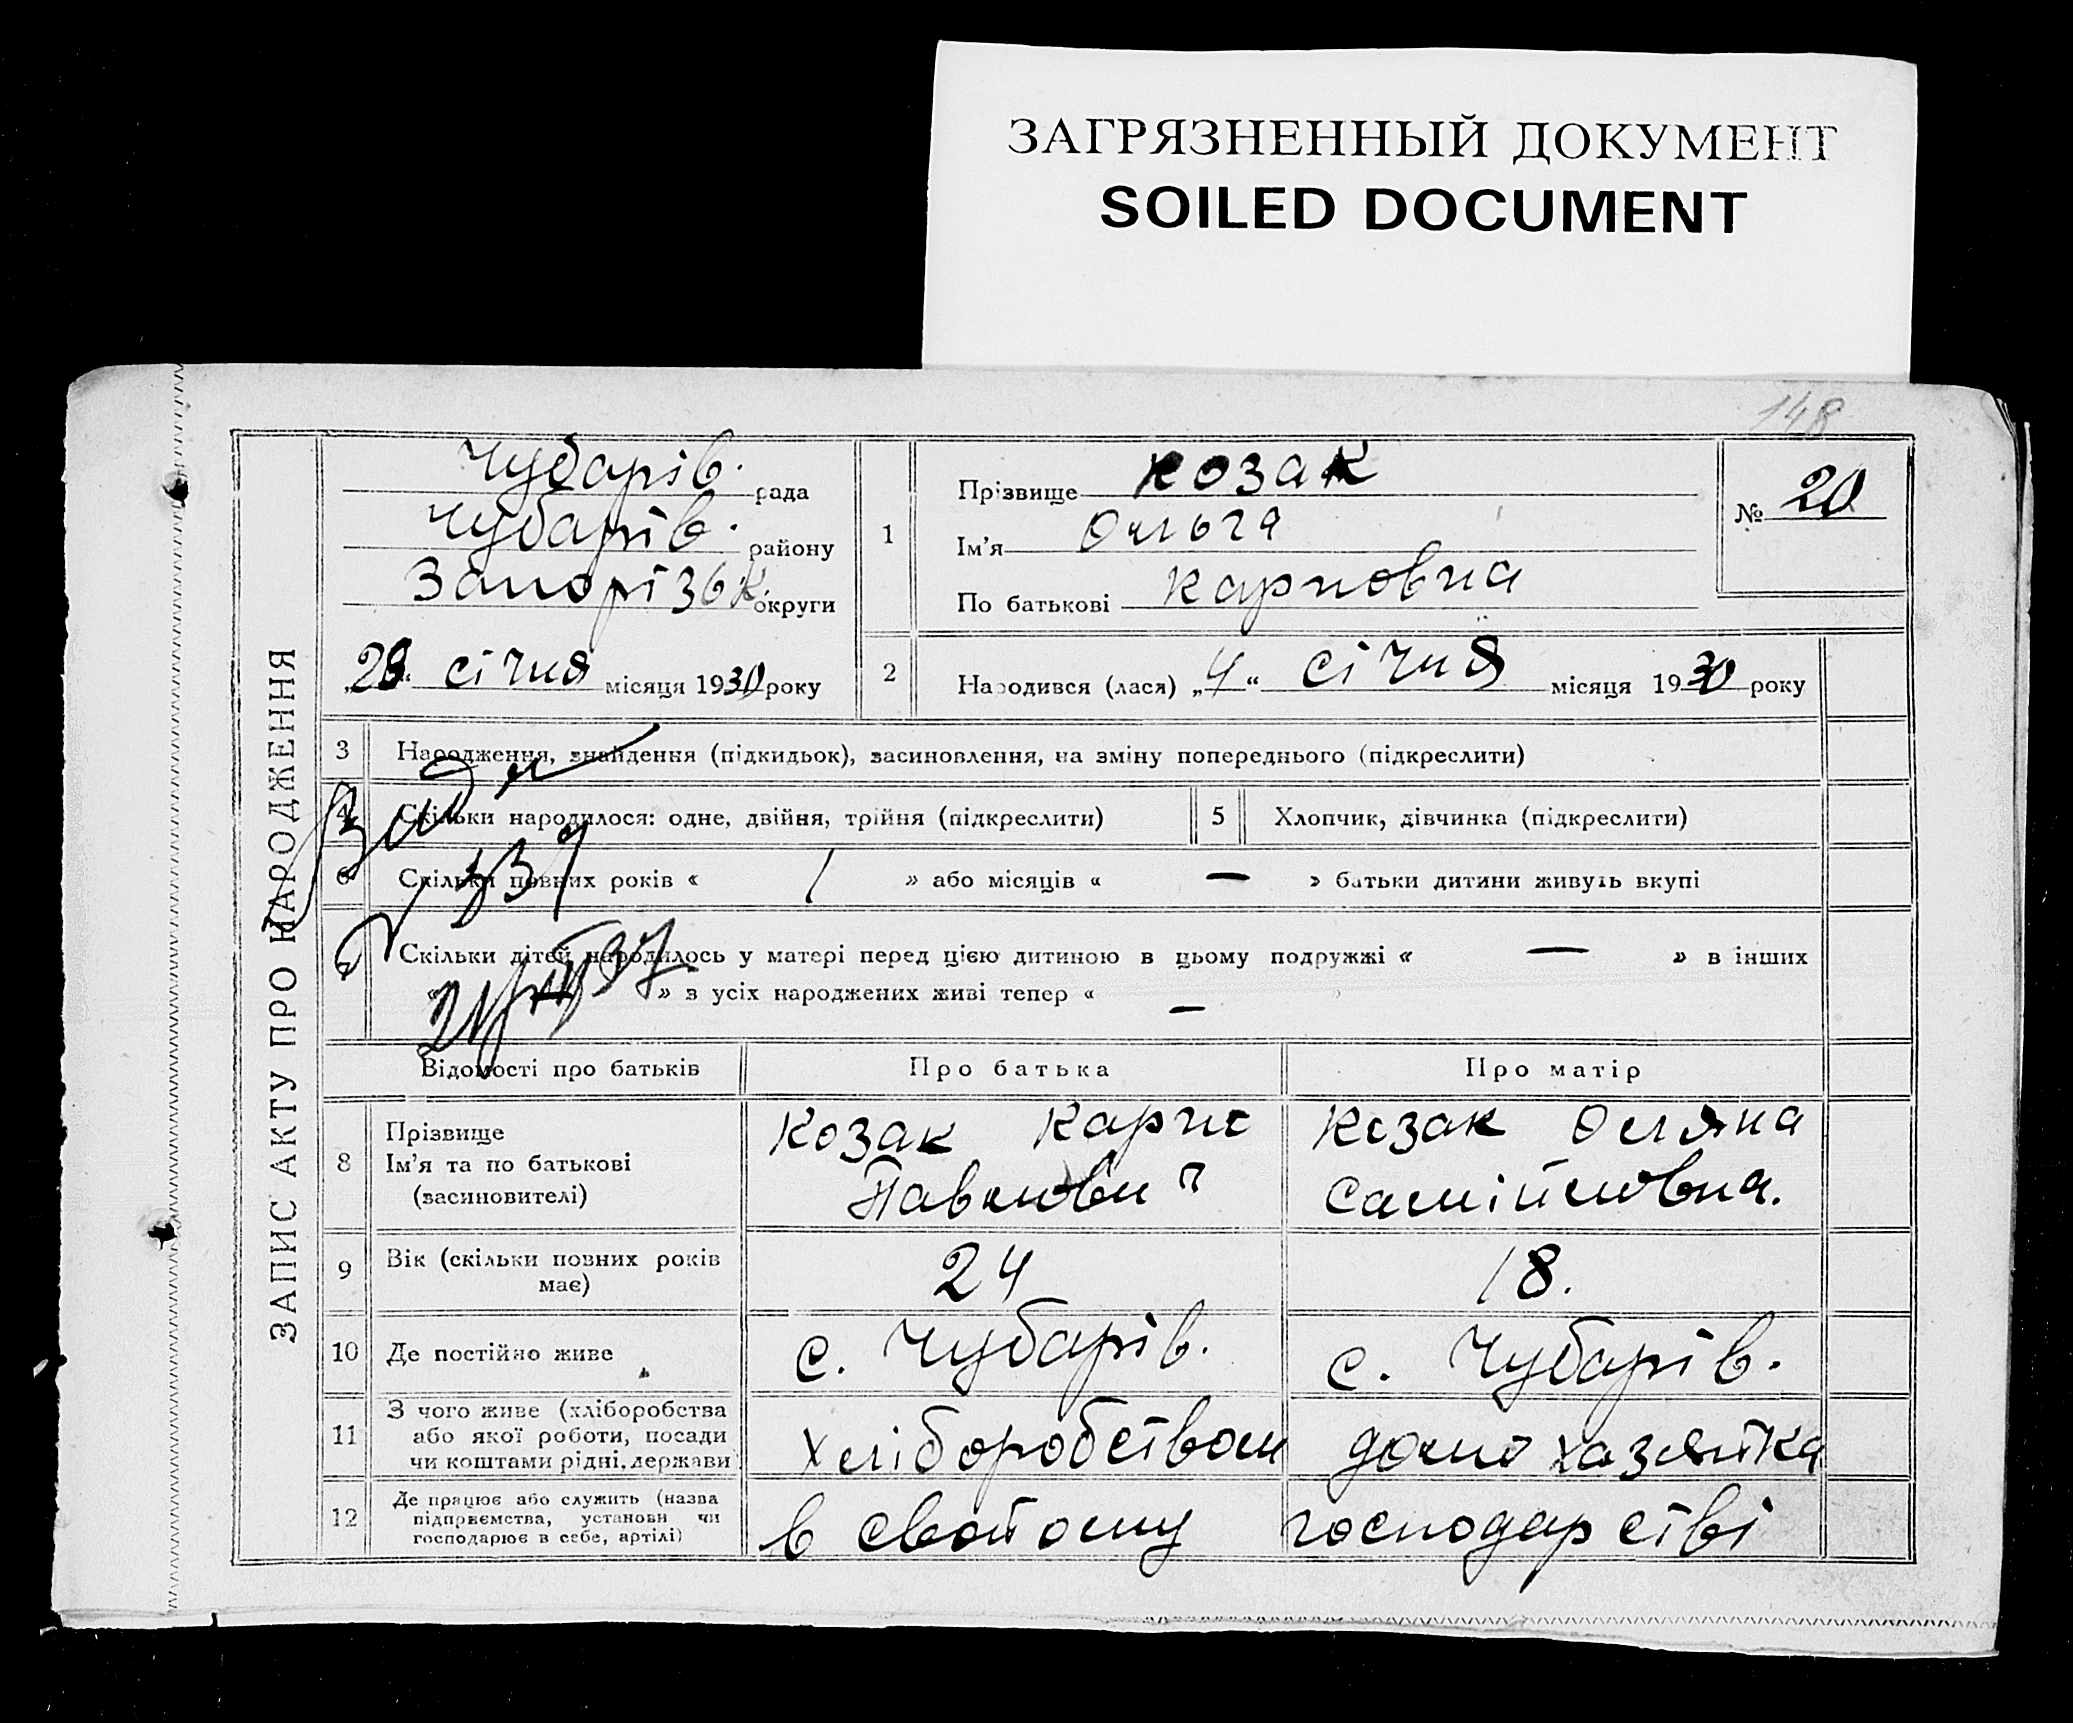 ЗАГРЯЗНЕННЫЙ ДОКУМЕНТ
SOILED DOCUMENT
148
ЗАПИС АКТУ ПРО НАРОДЖЕННЯ
Чубарів. рада
Чубарів. району
Запорізьк. округи
„28“ січня місяця 1930 року
1
Прізвище Козак
Ім'я Ольга
По батькові Карповна
№ 20
2 Народився (лася) „4“ січня місяця 1930 року
3 Народження, знайдення (підкидьок), засиновлення, на зміну попереднього (підкреслити)
4 Скільки народилося: одне, двійня, трійня (підкреслити)
5 Хлопчик, дівчинка (підкреслити)
6 Скільки повних років « 1 » або місяців « — » батьки дитини живуть вкупі
7 Скільки дітей народилось у матері перед цією дитиною в цьому подружжі « — » в інших
« » з усіх народжених живі тепер « —
Відомості про батьків Про батька Про матір
8 Прізвище
Ім'я та по батькові
(засиновителі)
Козак Карпо
Павлович
Козак Оляна
Самійловна.
9 Вік (скільки повних років
має)
24
18.
10 Де постійно живе
с. Чубарів.
с. Чубарів.
11 З чого живе (хліборобства
або якої роботи, посади
чи коштами рідні, держави)
хліборобством
домо хазяйка
12 Де працює або служить (назва
підприємства, установи чи
господарює в себе, артілі)
в свойому господарстві